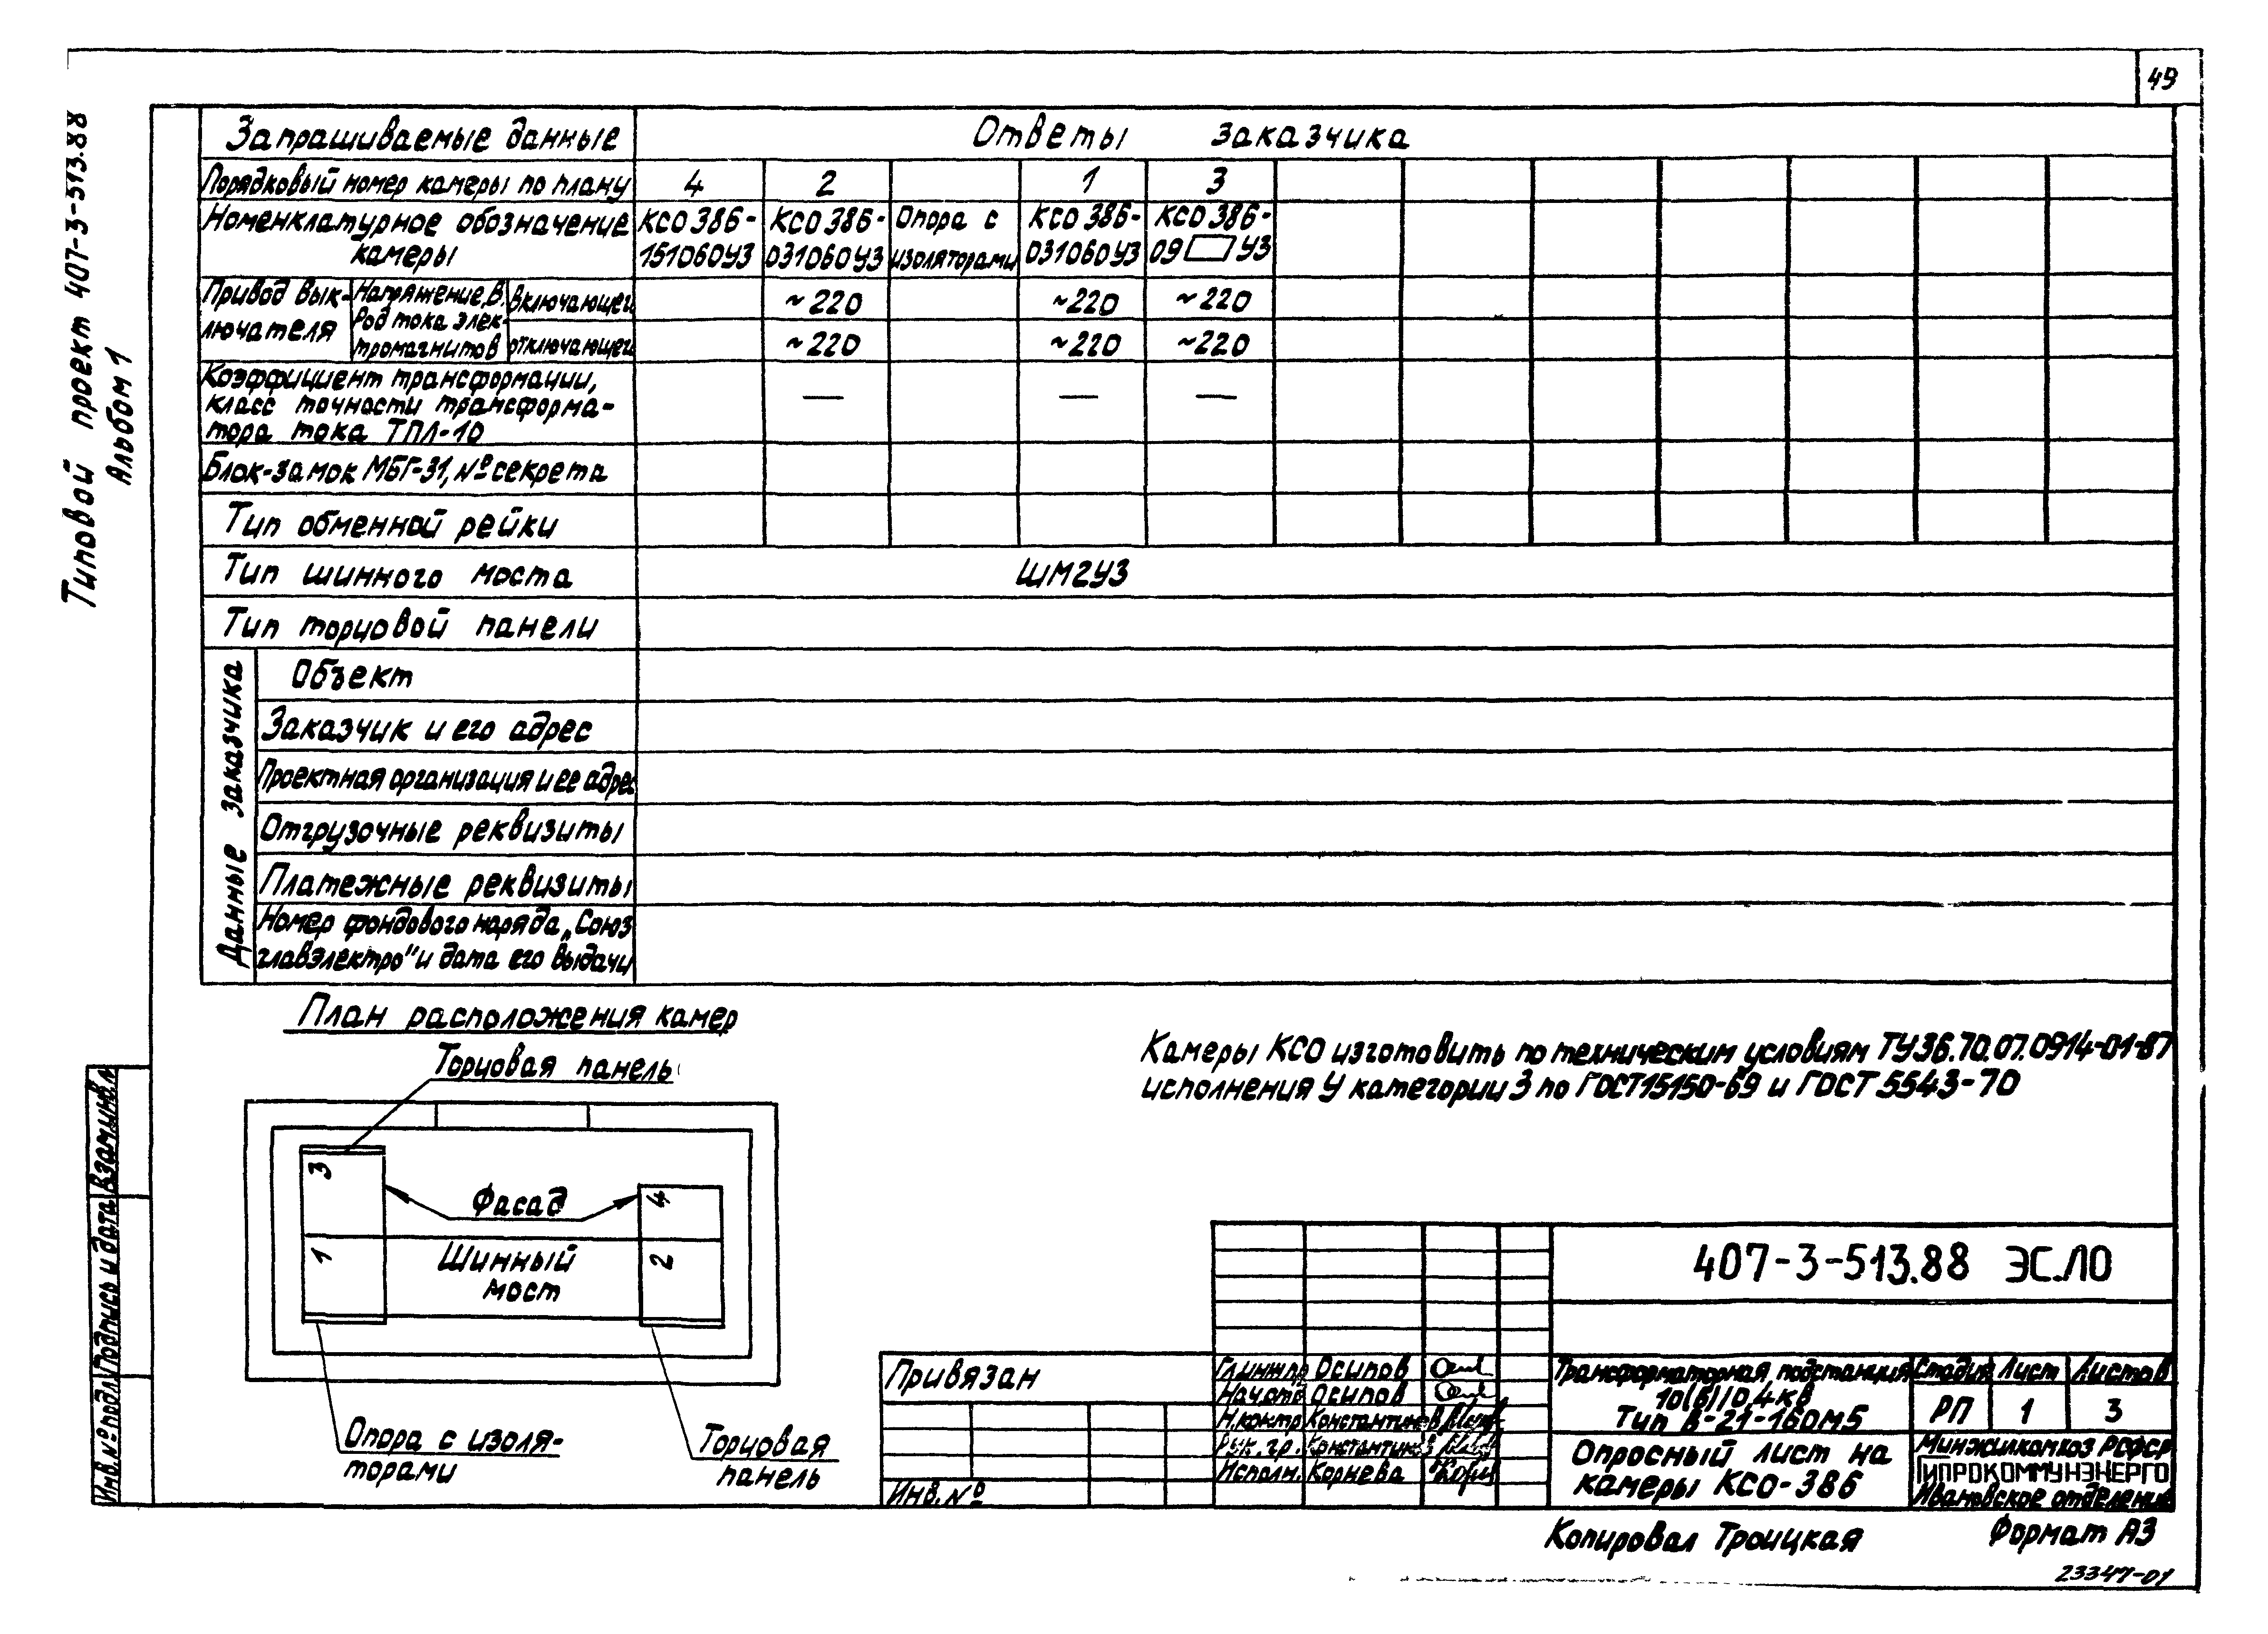 49
Типовой проект 407-3-513.88
Альбом 1
Запрашиваемые данные
Ответы заказчика
Порядковый номер камеры по плану
4 2 1 3
Номенклатурное обозначение
камеры
КСО 386-
151060У3
КСО 386-
031060У3
Опора с
изоляторами
КСО 386-
031060У3
КСО 386-
09 У3
Привод вык-
лючателя
Напряжение, В.
Род тока элек-
тромагнитов
включающего
~220 ~220 ~220
отключающего
~220 ~220 ~220
Коэффициент трансформации,
класс точности трансформа-
тора тока ТПЛ-10
— — —
Блок-замок МБГ-31, № секрета
Тип обменной рейки
Тип шинного моста
ШМ2У3
Тип торцовой панели
Данные заказчика
Объект
Заказчик и его адрес
Проектная организация и ее адрес
Отгрузочные реквизиты
Платежные реквизиты
Номер фондового наряда „Союз
главэлектро" и дата его выдачи
План расположения камер
Торцовая панель
3
Фасад
4
1
Шинный
мост
2
Опора с изоля-
торами
Торцовая
панель
Камеры КСО изготовить по техническим условиям ТУ36.70.07.0914-01-87
исполнения У категории 3 по ГОСТ15150-69 и ГОСТ 5543-70
Взам.инв.№
Подпись и дата
Инв.№ подл.
Привязан
Инв.№
407-3-513.88 ЭС.ЛО
Гл.инж.пр. Осипов
Нач.отд. Осипов
Н.контр. Константинов
Рук.гр. Константинов
Исполн. Корнева
Трансформаторная подстанция
10(6)/0,4кв
Тип В-21-160М5
Стадия Лист Листов
РП 1 3
Опросный лист на
камеры КСО-386
Минжилкомхоз РСФСР
ГИПРОКОММУНЭНЕРГО
Ивановское отделение
Копировал Троицкая
Формат А3
23347-01